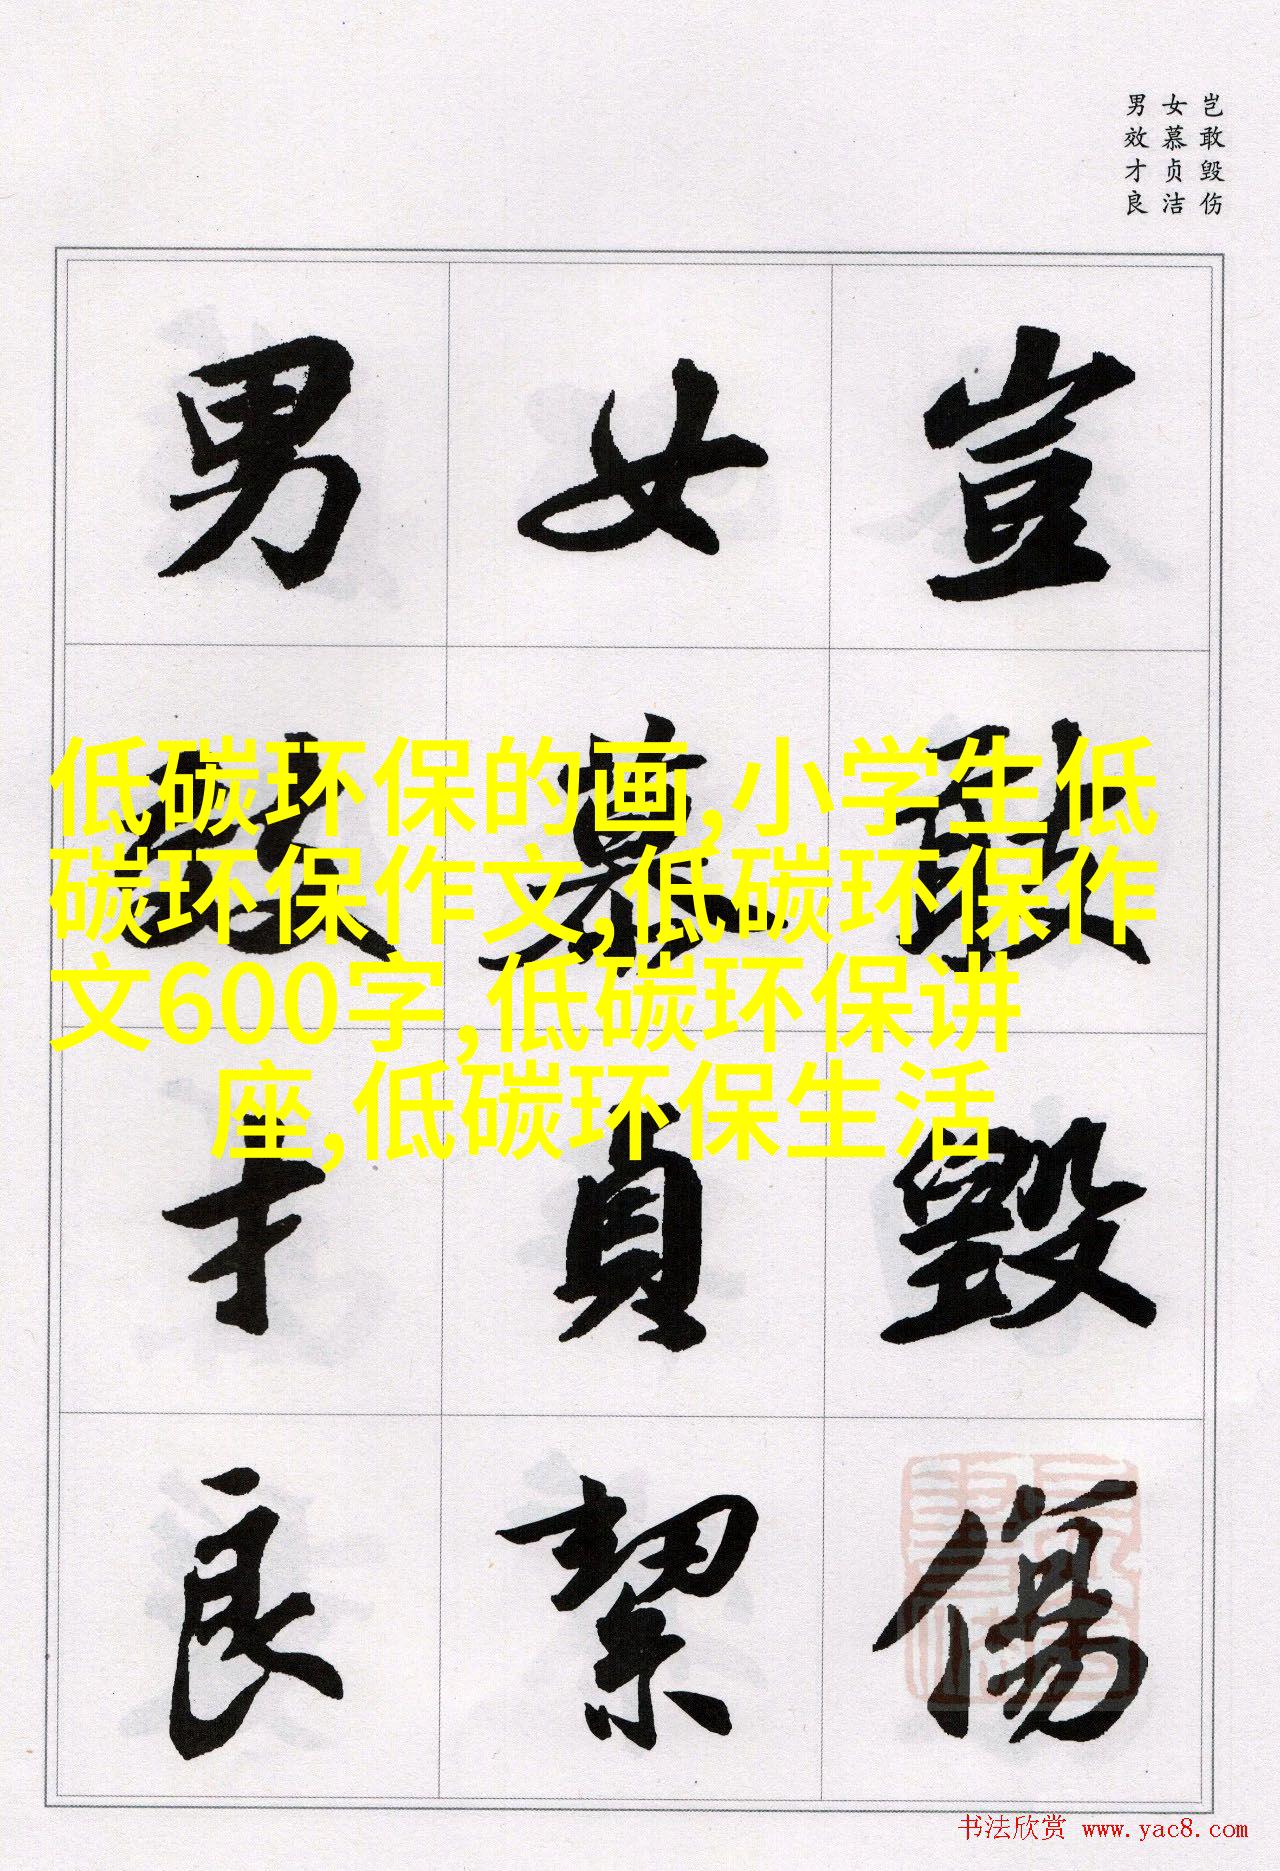 岂敢毁伤
女慕贞洁
男效才良
豈敢毀傷
女慕貞絜
男效才良
低碳环保的画,小学生低
碳环保作文,低碳环保作
文600字,低碳环保讲
座,低碳环保生活
书法欣赏 www.yac8.com